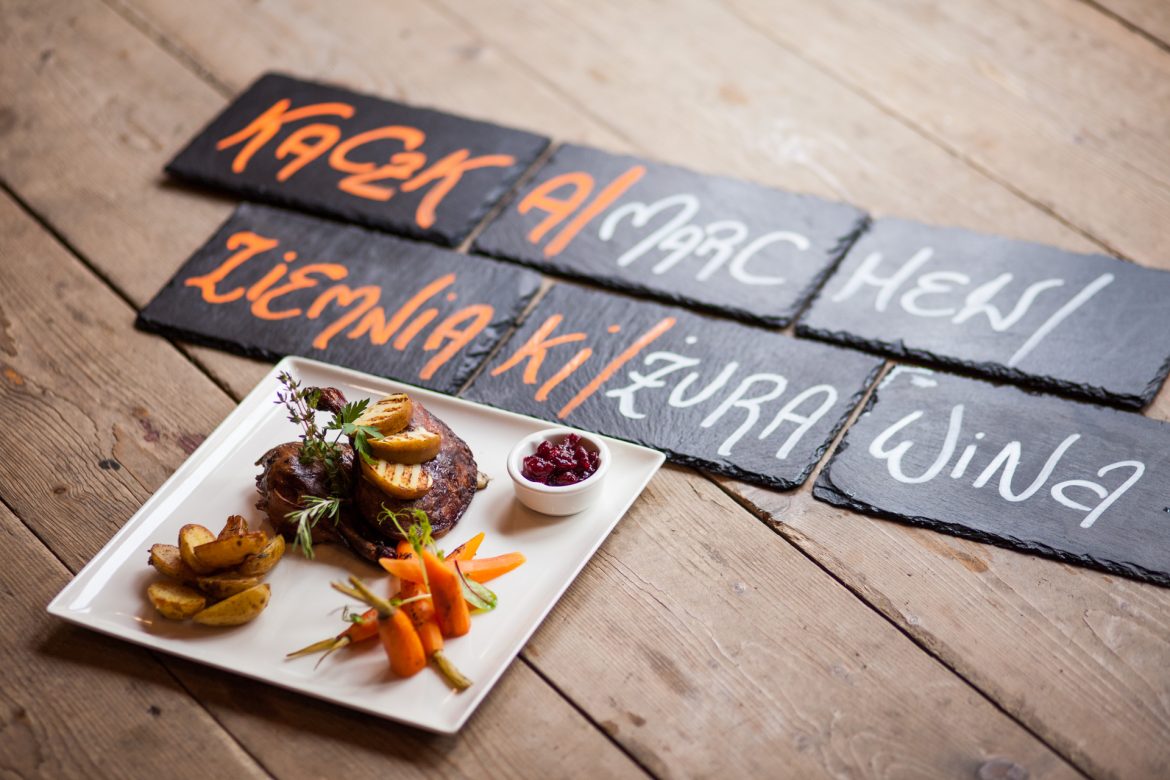 KACZK A/MARC HEW/
ZIEMNIA Ki/ŻURA WiNa